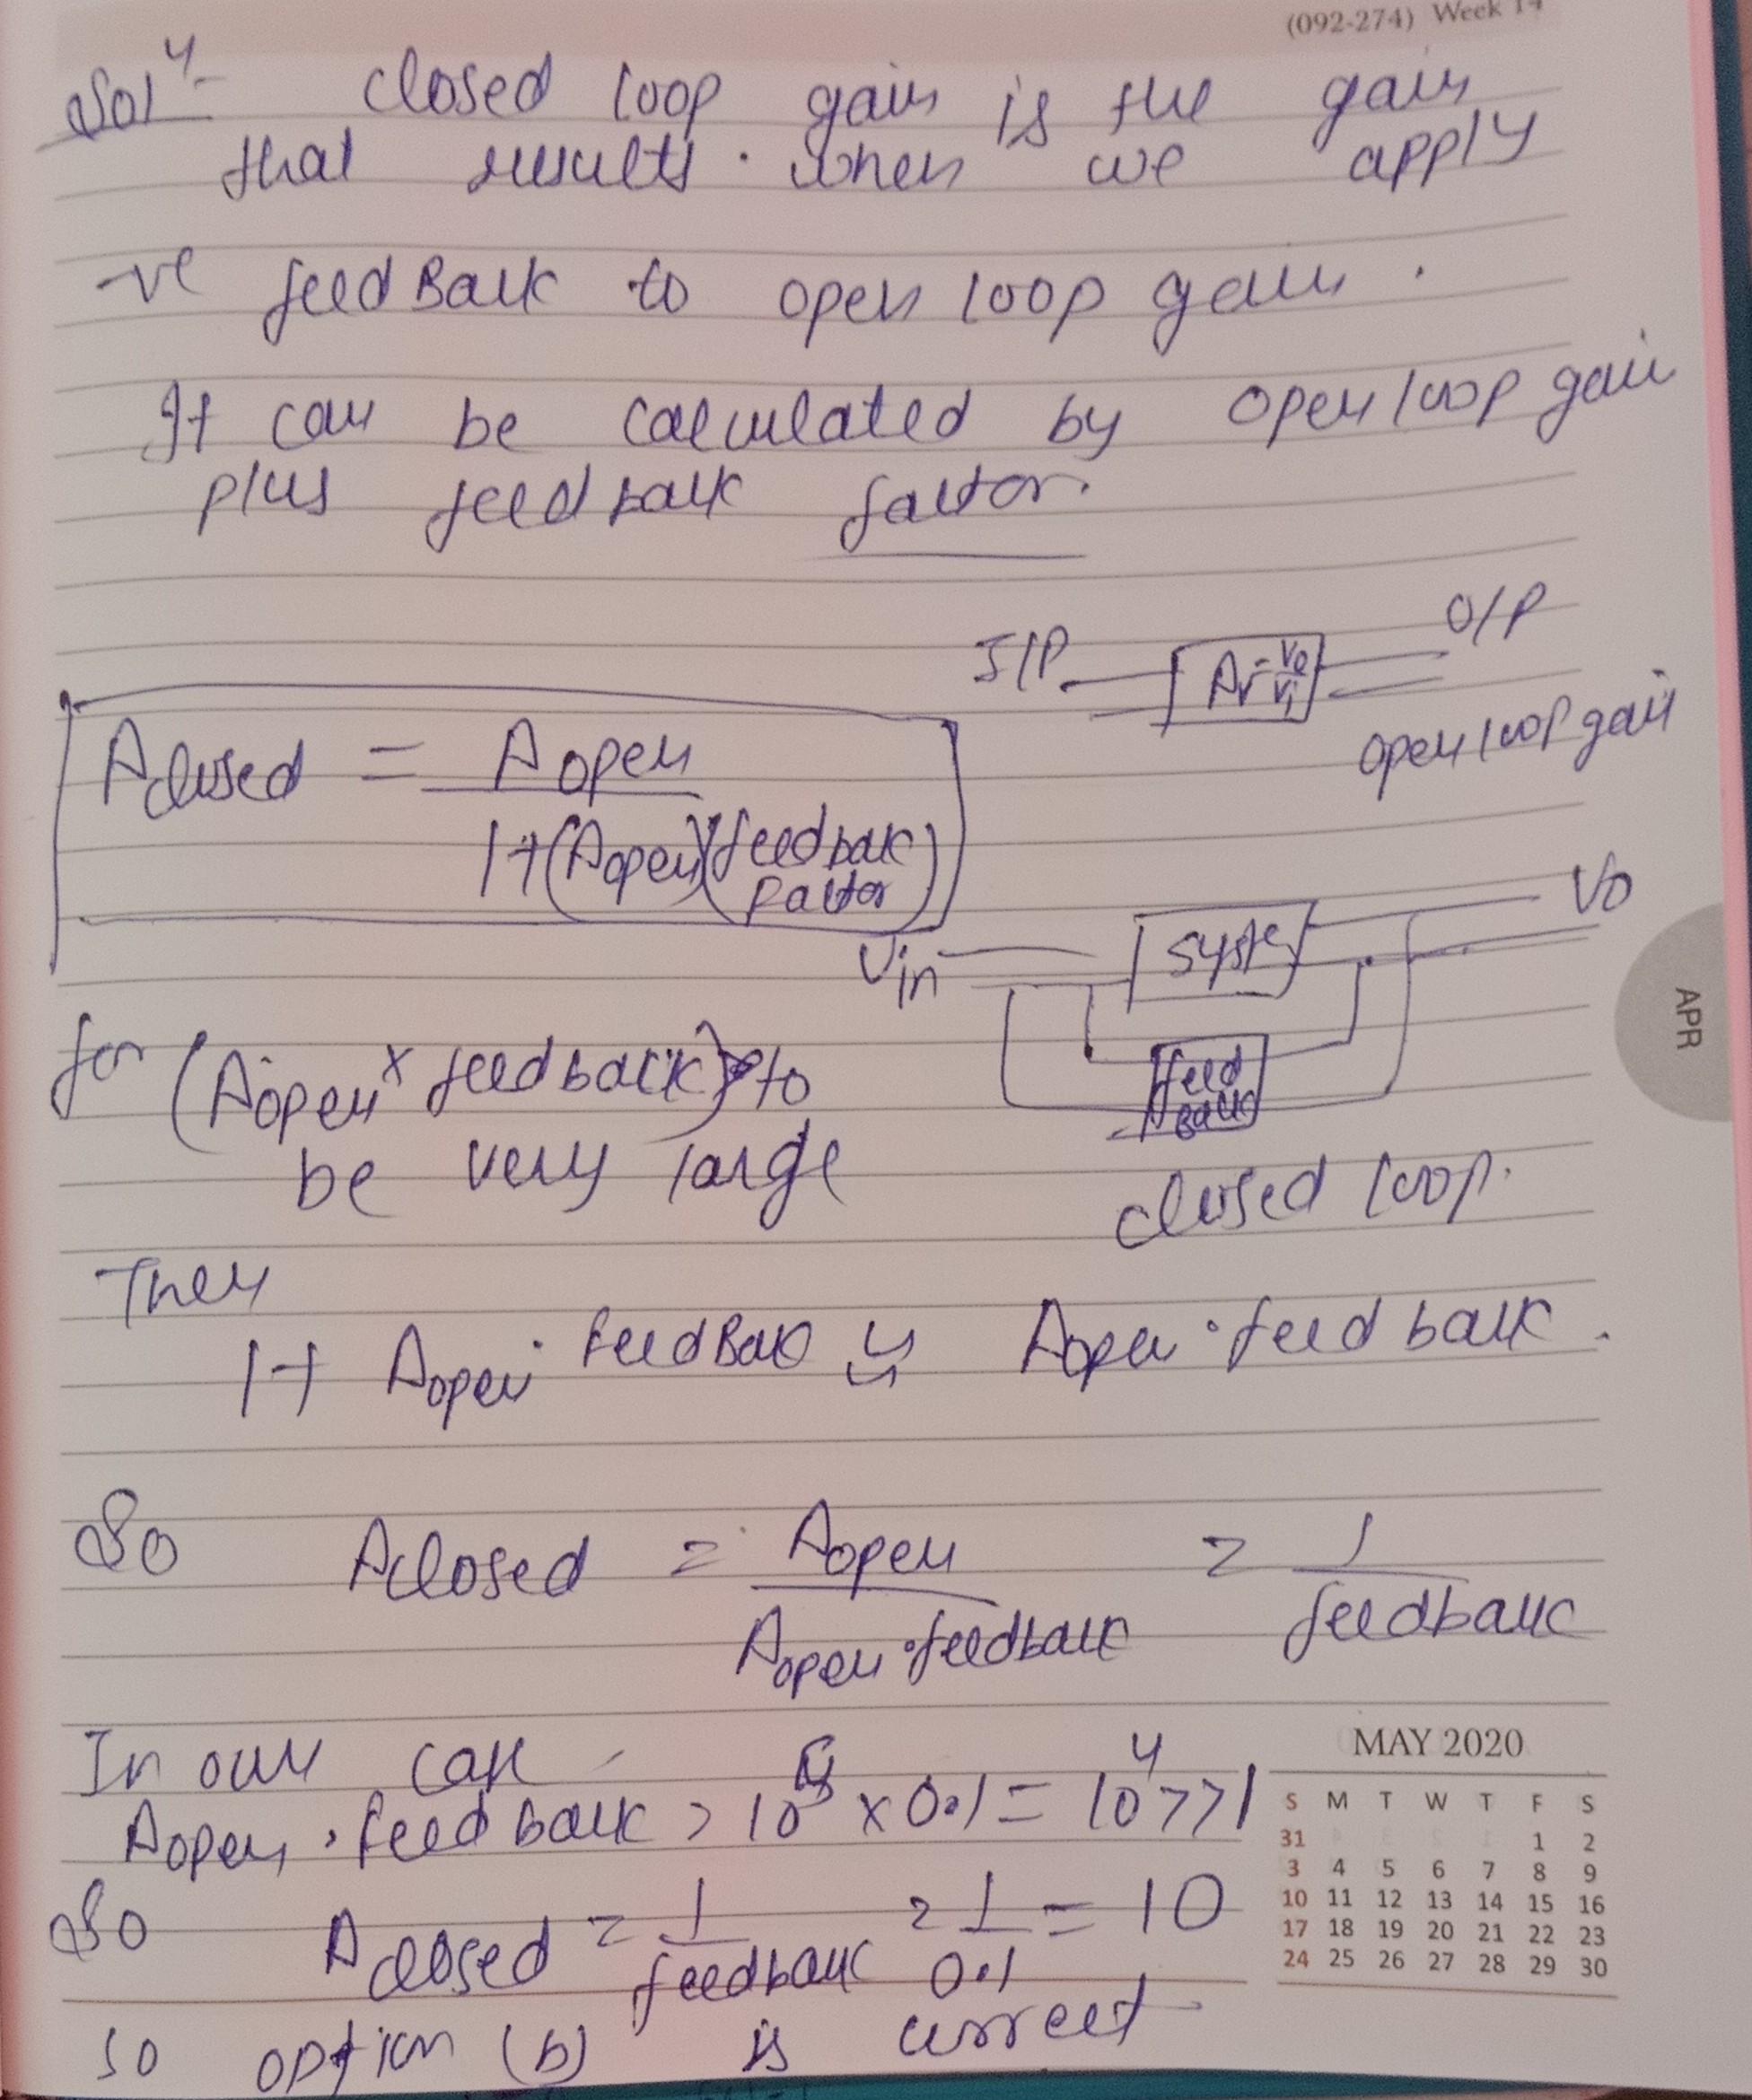 (092-274) Week 14
Solⁿ- closed loop gain is the gain
that results when we apply
-ve feedBack to open loop gain.
It can be calculated by open loop gain
plus feedback factor.
I/P Av=Vo/Vi O/P
open loop gain
Aclosed = Aopen
1+(Aopen)(feedback
Factor)
Vin Syste Vo
feed
Back
closed loop.
for (Aopen x feedback) to
be very large
Then
1+ Aopen · FeedBack ≈ Aopen · feedback.
So Aclosed = Aopen = 1
Aopen · feedback feedback
In our case
Aopen · feedback > 10⁵ x 0.1 = 10⁴ >>1
So Aclosed = 1 = 1 = 10
feedback 0.1
so option (b) is correct
APR
MAY 2020
S M T W T F S
31 1 2
3 4 5 6 7 8 9
10 11 12 13 14 15 16
17 18 19 20 21 22 23
24 25 26 27 28 29 30